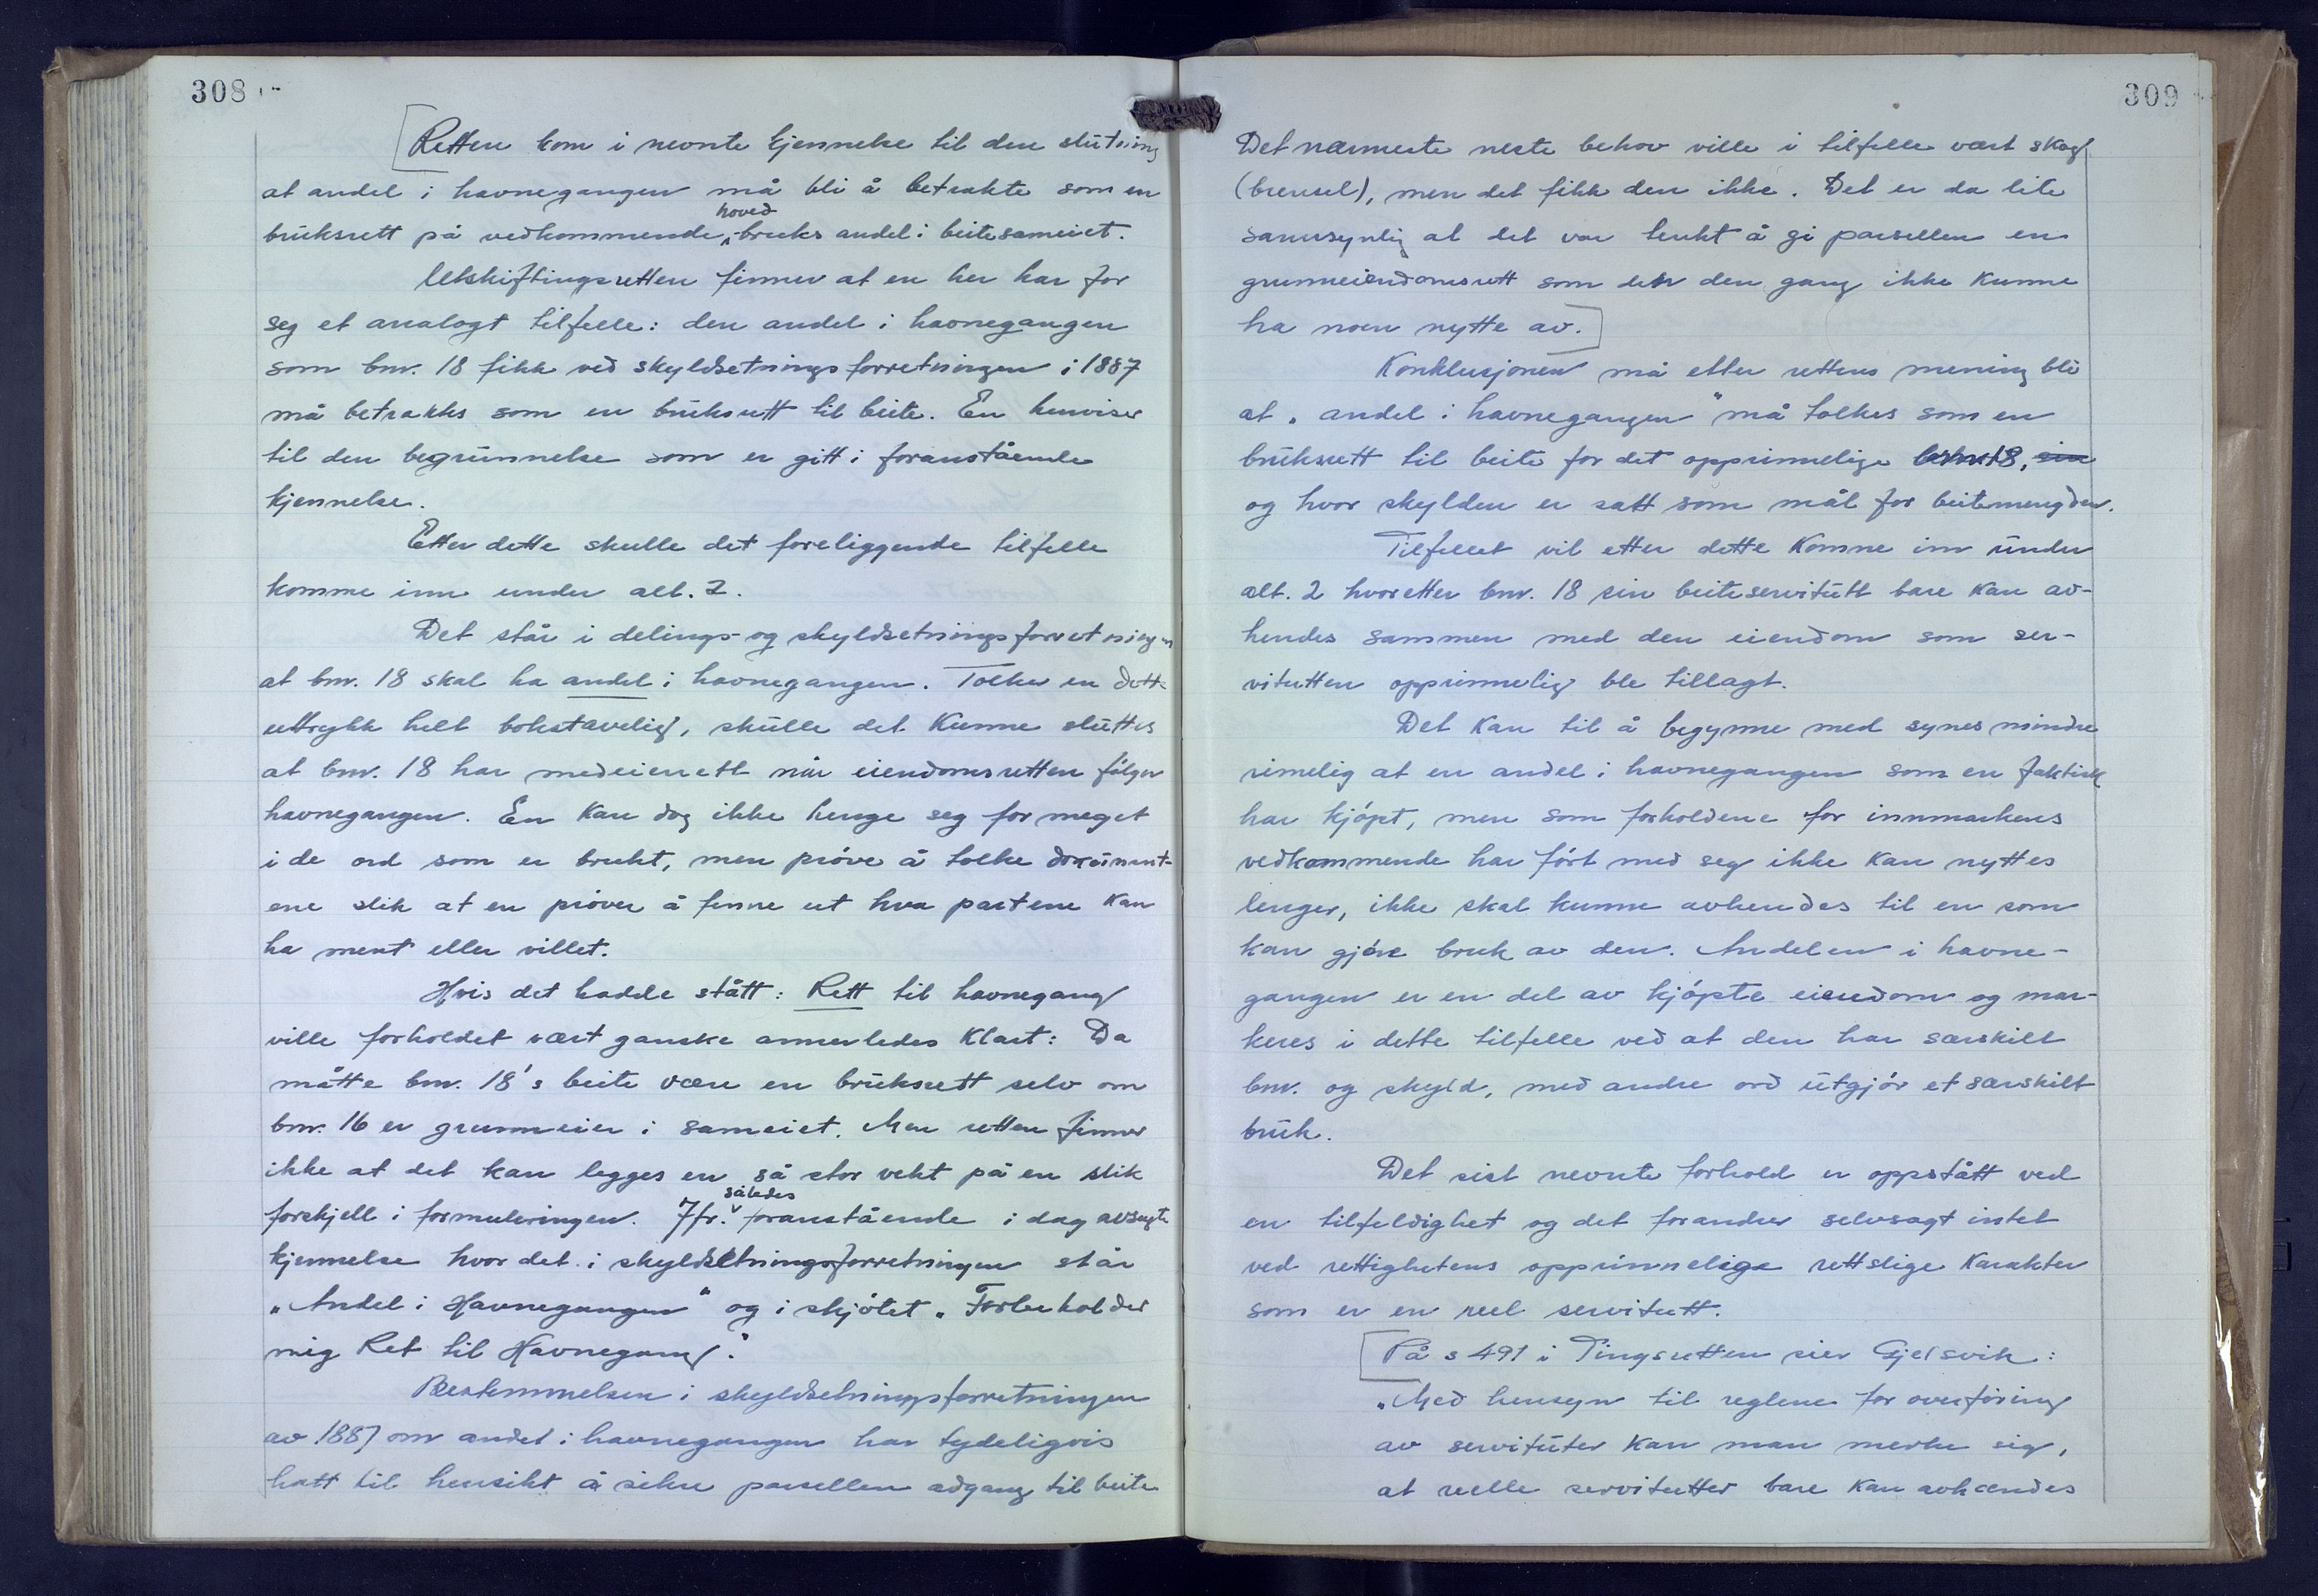 308
Retten kom i nevnte kjennelse til den slutning
at andel i havnegangen må bli å betrakte som en
hoved
bruksrett på vedkommende -bruks andel i beitesameiet.
Utskiftingsretten finner at en her har for
seg et analogt tilfelle: den andel i havnegangen
som bnr. 18 fikk ved skyldsetningsforretningen i 1887
må betraktes som en bruksrett til beite. En henviser
til den begrunnelse som er gitt i foranstående
kjennelse.
Etter dette skulle det foreliggende tilfelle
komme inn under alt. 2.
Det står i delings- og skyldsetningsforretningen
at bnr. 18 skal ha andel i havnegangen. Tolker en dette
uttrykk helt bokstavelig, skulle det kunne sluttes
at bnr. 18 har medeierrett når eiendomsretten følger
havnegangen. En kan dog ikke henge seg for meget
i de ord som er brukt, men prøve å tolke dokument-
ene slik at en prøver å finne ut hva partene kan
ha ment eller villet.
Hvis det hadde stått: Rett til havnegang
ville forholdet vært ganske annerledes klart: Da
måtte bnr. 18's beite være en bruksrett selv om
bnr. 16 er grunneier i sameiet. Men retten finner
ikke at det kan legges en så stor vekt på en slik
således
forskjell i formuleringen. Jfr. foranstående i dag avsagte
kjennelse hvor det i skyldsetningsforretningen står
„Andel i Havnegangen" og i skjøtet „Forbeholder
mig Ret til Havnegang".
Bestemmelsen i skyldsetningsforretningen
av 1887 om andel i havnegangen har tydeligvis
hatt til hensikt å sikre parsellen adgang til beite
309
Det nærmeste neste behov ville i tilfelle vært skog
(brensel), men det fikk den ikke. Det er da lite
sannsynlig at det var tenkt å gi parsellen en
grunneiendomsrett som den den gang ikke kunne
ha noen nytte av.
Konklusjonen må etter rettens mening bli
at „andel i havnegangen" må tolkes som en
bruksrett til beite for det opprinnelige bnr. 18,
og hvor skylden er satt som mål for beitemengden.
Tilfellet vil etter dette komme inn under
alt. 2 hvoretter bnr. 18 sin beiteservitutt bare kan av-
hendes sammen med den eiendom som ser-
vitutten opprinnelig ble tillagt.
Det kan til å begynne med synes mindre
rimelig at en andel i havnegangen som en faktisk
har kjøpt, men som forholdene for innmarkens
vedkommende har ført med seg ikke kan nyttes
lenger, ikke skal kunne avhendes til en som
kan gjøre bruk av den. Andelen i havne-
gangen er en del av kjøpte eiendom og mar-
keres i dette tilfelle ved at den har særskilt
bnr. og skyld, med andre ord utgjør et særskilt
bruk.
Det sist nevnte forhold er oppstått ved
en tilfeldighet og det forandrer selvsagt intet
ved rettighetens opprinnelige rettslige karakter
som er en reel servitutt.
På s 491 i Tingsretten sier Gjelsvik:
„Med hensyn til reglene for overføring
av servituter kan man merke sig,
at reelle servitutter bare kan avhændes